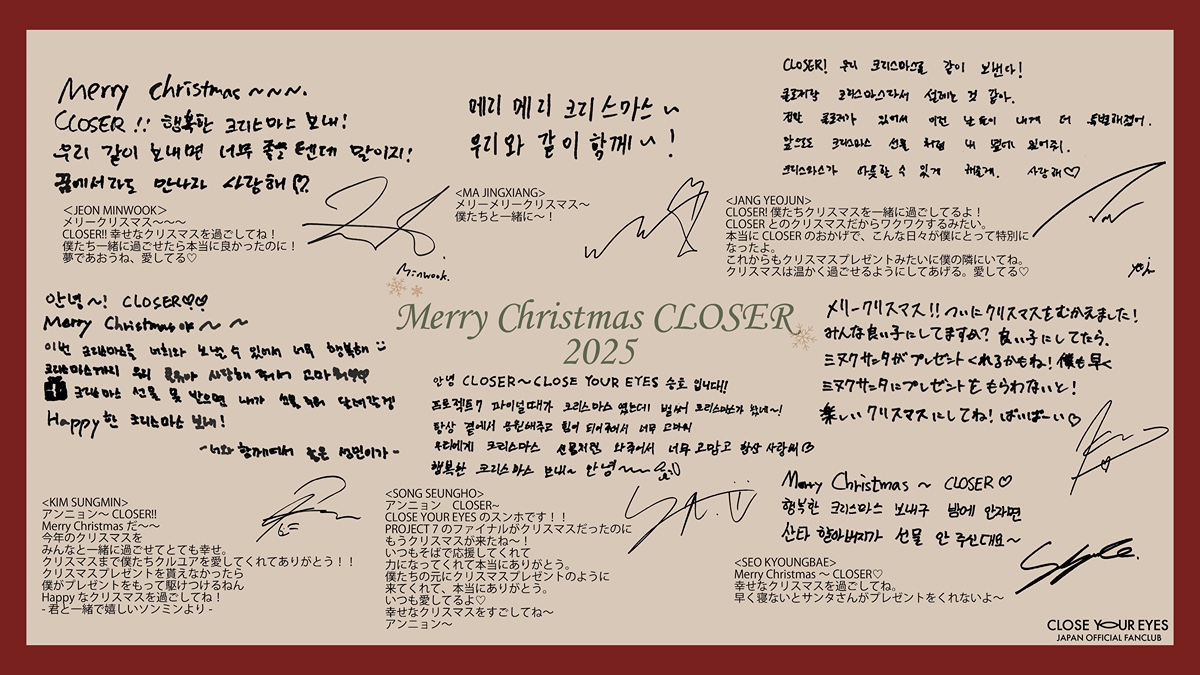 Merry Christmas ~~~.
CLOSER!! 행복한 크리스마스 보내!
우리 같이 보내면 너무 좋을 텐데 말이지!
꿈에서라도 만나자 사랑해♡
<JEON MINWOOK>
メリークリスマス〜〜〜
CLOSER!! 幸せなクリスマスを過ごしてね!
僕たち一緒に過ごせたら本当に良かったのに!
夢であおうね、愛してる♡
Minwook.
메리 메리 크리스마스~
우리와 같이 함께~!
<MA JINGXIANG>
メリーメリークリスマス〜
僕たちと一緒に〜!
CLOSER! 우리 크리스마스를 같이 보낸다!
클로저랑 크리스마스라서 설레는 것 같아.
정말 클로저가 있어서 이런 날들이 내게 더 특별해졌어.
앞으로도 크리스마스 선물 처럼 내 옆에 있어줘.
크리스마스가 따뜻할 수 있게 해줄게. 사랑해♡
<JANG YEOJUN>
CLOSER! 僕たちクリスマスを一緒に過ごしてるよ!
CLOSER とのクリスマスだからワクワクするみたい。
本当に CLOSER のおかげで、こんな日々が僕にとって特別に
なったよ。
これからもクリスマスプレゼントみたいに僕の隣にいてね。
クリスマスは温かく過ごせるようにしてあげる。愛してる♡
Merry Christmas CLOSER
2025
안녕~! CLOSER♡♡
Merry Christmas야~ ~
이번 크리스마스를 너희와 보낼 수 있어서 너무 행복해
크리스마스까지 우리 사랑해 줘서 고마워♡♡
크리스마스 선물 못 받으면 내가 선물 들고 달려갈게
Happy한 크리스마스 보내!
-너와 함께여서 좋은 성민이가-
<KIM SUNGMIN>
アンニョン〜 CLOSER!!
Merry Christmas だ〜〜
今年のクリスマスを
みんなと一緒に過ごせてとても幸せ。
クリスマスまで僕たちクルユアを愛してくれてありがとう!!
クリスマスプレゼントを貰えなかったら
僕がプレゼントをもって駆けつけるねん
Happy なクリスマスを過ごしてね!
- 君と一緒で嬉しいソンミンより -
안녕 CLOSER~ CLOSE YOUR EYES 승호 입니다!!
프로젝트7 파이널때가 크리스마스 였는데 벌써 크리스마스가 왔네~!
항상 곁에서 응원해주고 힘이 되어줘서 너무 고마워
우리에게 크리스마스 선물처럼 와주어서 너무 고맙고 항상 사랑해♡
행복한 크리스마스 보내~ 안녕~~
<SONG SEUNGHO>
アンニョン CLOSER~
CLOSE YOUR EYES のスンホです!!
PROJECT 7 のファイナルがクリスマスだったのに
もうクリスマスが来たね〜!
いつもそばで応援してくれて
力になってくれて本当にありがとう。
僕たちの元にクリスマスプレゼントのように
来てくれて、本当にありがとう。
いつも愛してるよ♡
幸せなクリスマスをすごしてね〜
アンニョン〜
メリークリスマス!!ついにクリスマスをむかえました!
みんな良い子にしてますぬ?良い子にしてたら、
ミヌクサンタがプレゼントくれるかもね!僕も早く
ミヌクサンタにプレゼントをもらわないと!
楽しいクリスマスにしてね!ばいばーい♡
Merry Christmas ~ CLOSER♡
행복한 크리스마스 보내구 밤에 안자면
산타 할아버지가 선물 안 주신대요~
<SEO KYOUNGBAE>
Merry Christmas 〜 CLOSER♡
幸せなクリスマスを過ごしてね。
早く寝ないとサンタさんがプレゼントをくれないよ〜
CLOSE YOUR EYES
JAPAN OFFICIAL FANCLUB